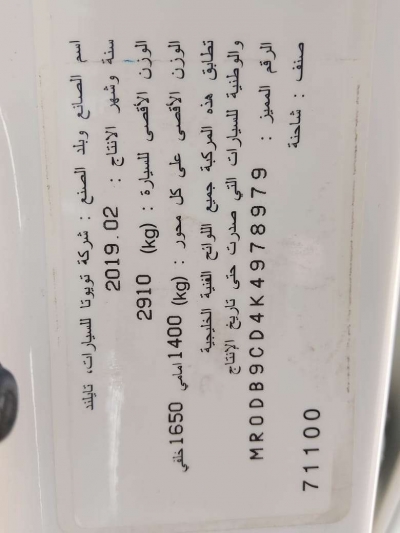 اسم الصانع وبلد الصنع : شركة تويوتا للسيارات، تايلند
سنة وشهر الانتاج : 2019.02
الوزن الأقصى للسيارة : (kg) 2910
الوزن الأقصى على كل محور : (kg) 1400 امامي 1650 خلفي
تطابق هذه المركبة جميع اللوائح الفنية الخليجية
والوطنية للسيارات التي صدرت حتى تاريخ الإنتاج
الرقم المميز : MR0DB9CD4K4978979
صنف : شاحنة
71100